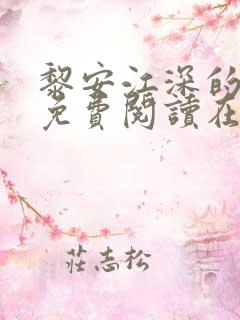 黎安江深的
免費閱讀在
莊志松